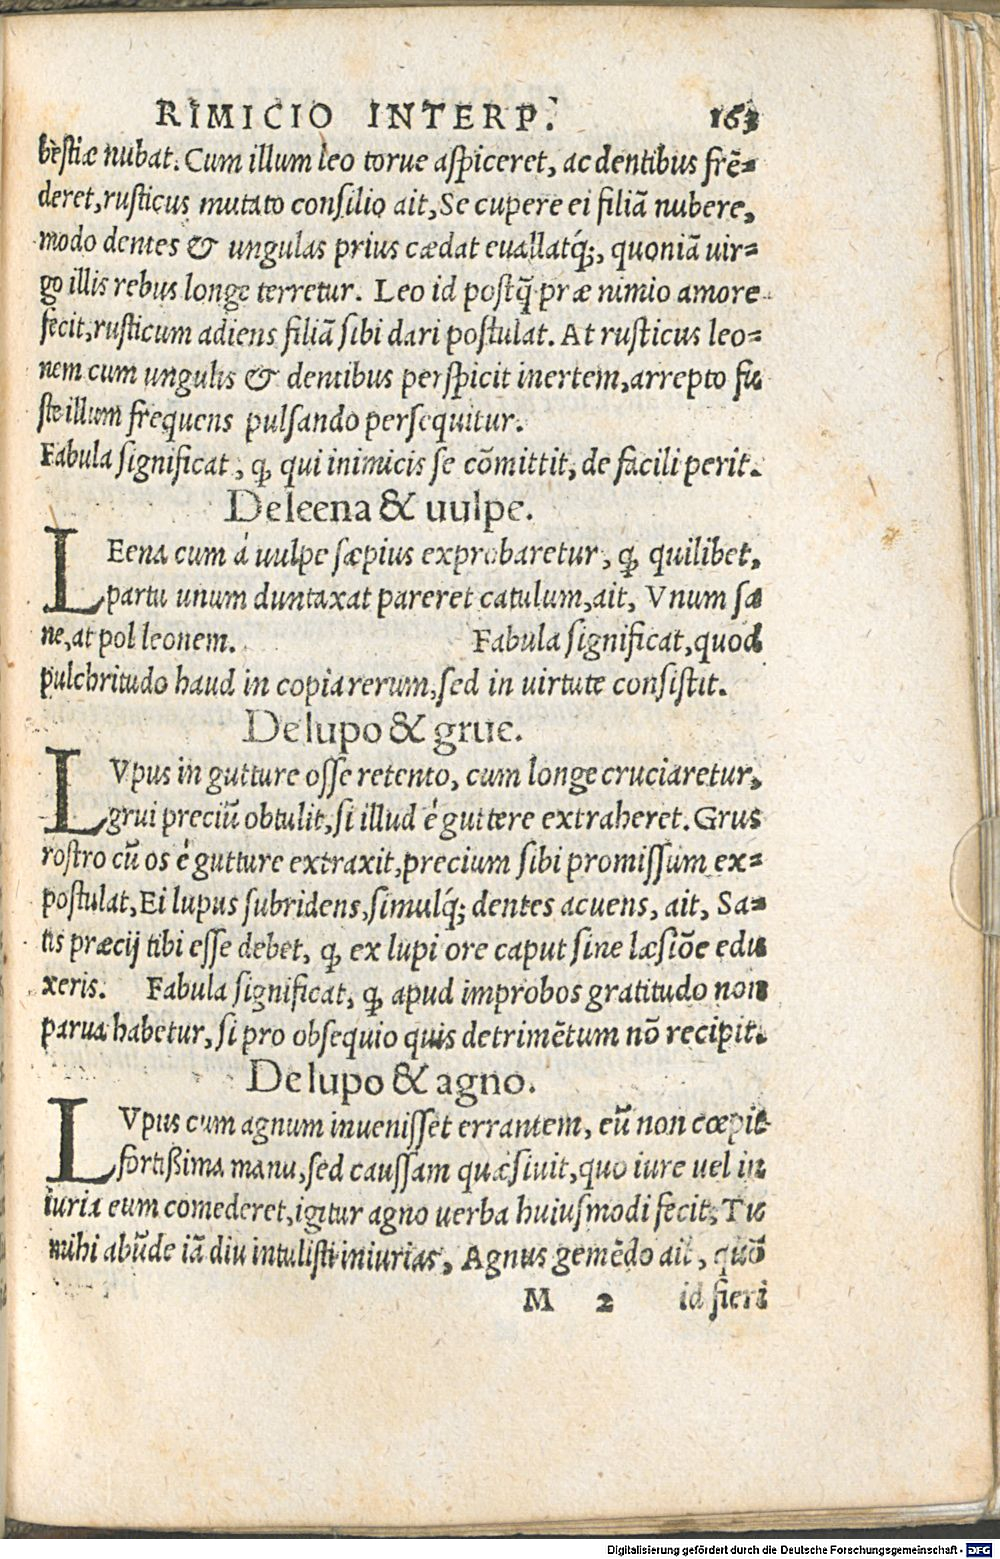 RIMICIO INTERP. 163
bestiæ nubat. Cum illum leo torue aspiceret, ac dentibus frē=
deret, rusticus mutato consilio ait, Se cupere ei filiā nubere,
modo dentes & ungulas prius cædat euallatq́;, quoniā uir=
go illis rebus longe terretur. Leo id postq̄ præ nimio amore
fecit, rusticum adiens filiā sibi dari postulat. At rusticus leo=
nem cum ungulis & dentibus perspicit inertem, arrepto fu
ste illum frequens pulsando persequitur.
Fabula significat, ꝙ qui inimicis se cōmittit, de facili perit.
De leena & uulpe.
LEena cum á uulpe sæpius exprobaretur, ꝙ quilibet,
partu unum duntaxat pareret catulum, ait, Vnum sa
ne, at pol leonem. Fabula significat, quod
pulchritudo haud in copia rerum, sed in uirtute consistit.
De lupo & grue.
LVpus in gutture osse retento, cum longe cruciaretur,
grui preciū obtulit, si illud é guttere extraheret. Grus
rostro cū os é gutture extraxit, precium sibi promissum ex=
postulat, Ei lupus subridens, simulq́; dentes acuens, ait, Sa=
tis præcij tibi esse debet, ꝙ ex lupi ore caput sine læsiōe edu
xeris. Fabula significat, ꝙ apud improbos gratitudo non
parua habetur, si pro obsequio quis detrimētum nō recipit.
De lupo & agno.
LVpus cum agnum inuenisset errantem, eū non cœpit
fortißima manu, sed caussam quæsiuit, quo iure uel in
iuria eum comederet, igitur agno uerba huiusmodi fecit, Tu
mihi abūde iā diu intulisti iniurias, Agnus gemēdo ait, quō
M 2 id fieri
Digitalisierung gefördert durch die Deutsche Forschungsgemeinschaft - DFG